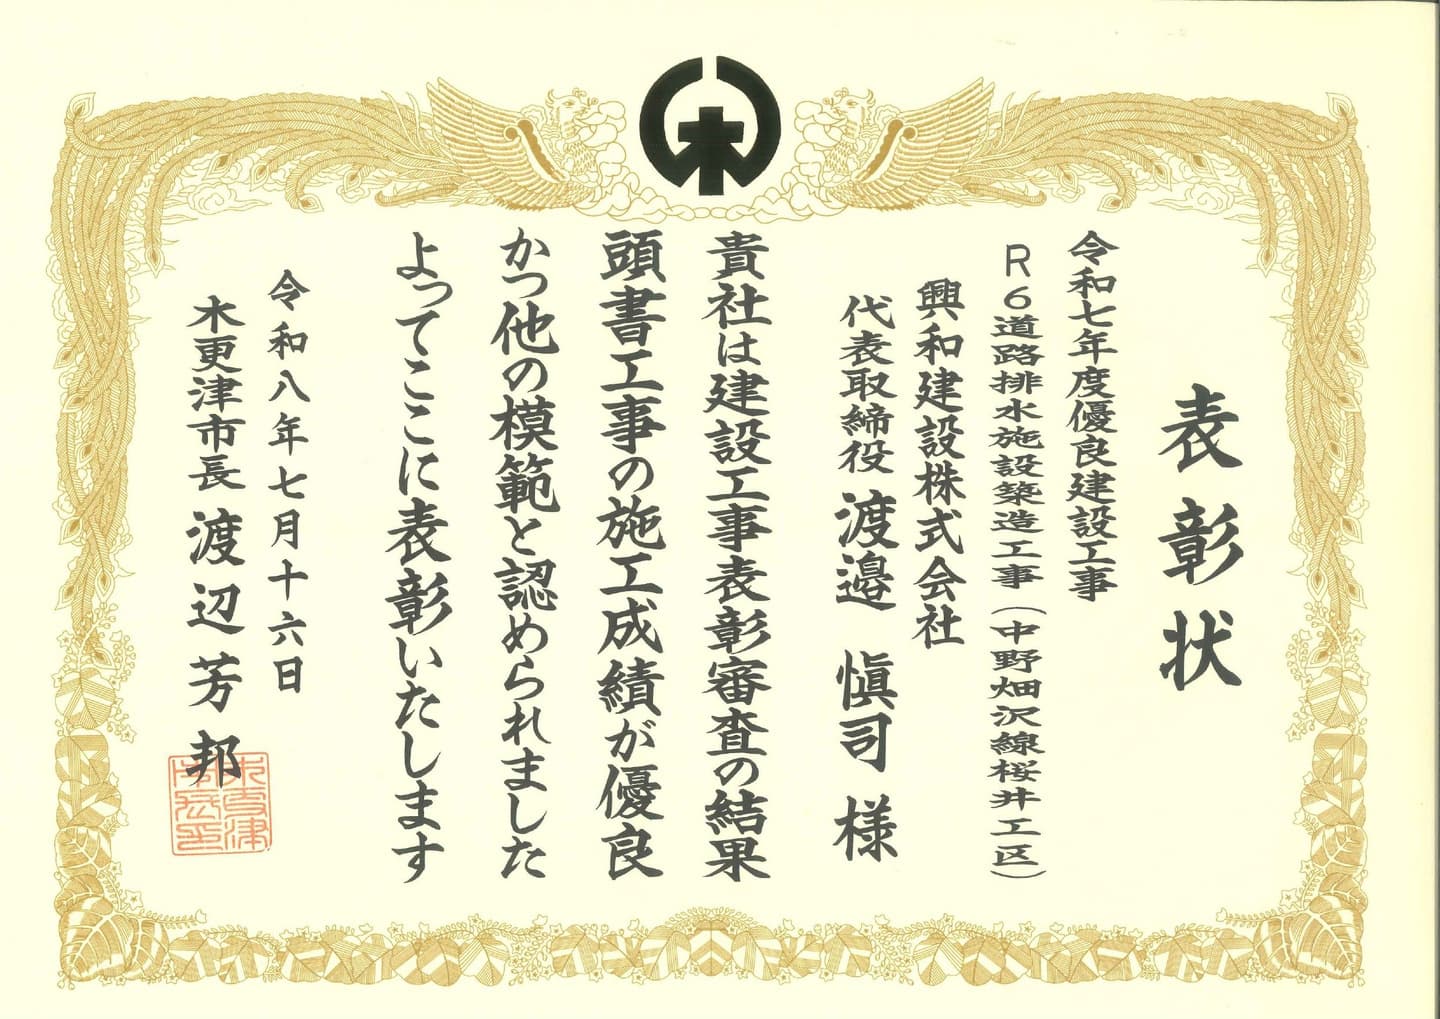 表彰状
令和七年度優良建設工事
R6道路排水施設築造工事(中野畑沢線桜井工区)
興和建設株式会社
代表取締役 渡邉 愼司 様
貴社は建設工事表彰審査の結果
頭書工事の施工成績が優良
かつ他の模範と認められました
よってここに表彰いたします
令和八年七月十六日
木更津市長 渡辺芳邦